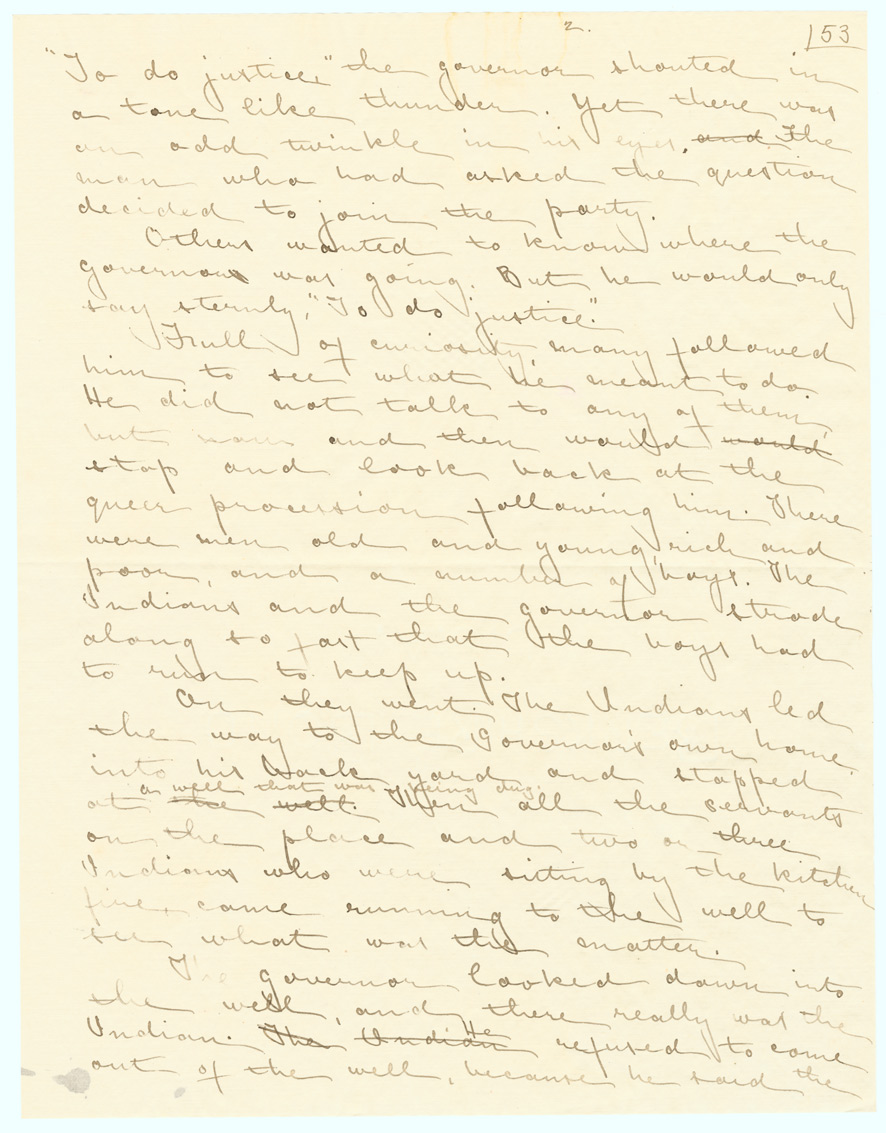 2.
153
"To do justice," the governor shouted in
a tone like thunder. Yet there was
an odd twinkle in his eyes, and The
man who had asked the question
decided to join the party.
Others wanted to know where the
governour was going. But he would only
say sternly, "To do justice."
Full of curiosity, many followed
him to see what he meant to do.
He did not talk to any of them
but now and then would would
stop and look back at the
queer procession following him. There
were men old and young, rich and
poor, and a number of boys. The
Indians and the governor strode
along so fast that the boys had
to run to keep up.
On they went. The Indians led
the way to the Governor's own home
into his back yard and stopped
a well that was being dug.
at the well. Then all the servants
on the place and two or three
Indians who were sitting by the kitchen
fire, came running to the well to
see what was the matter.
The governor looked down into
the well, and there really was the
He
Indian. The Indian refused to come
out of the well, because he said the